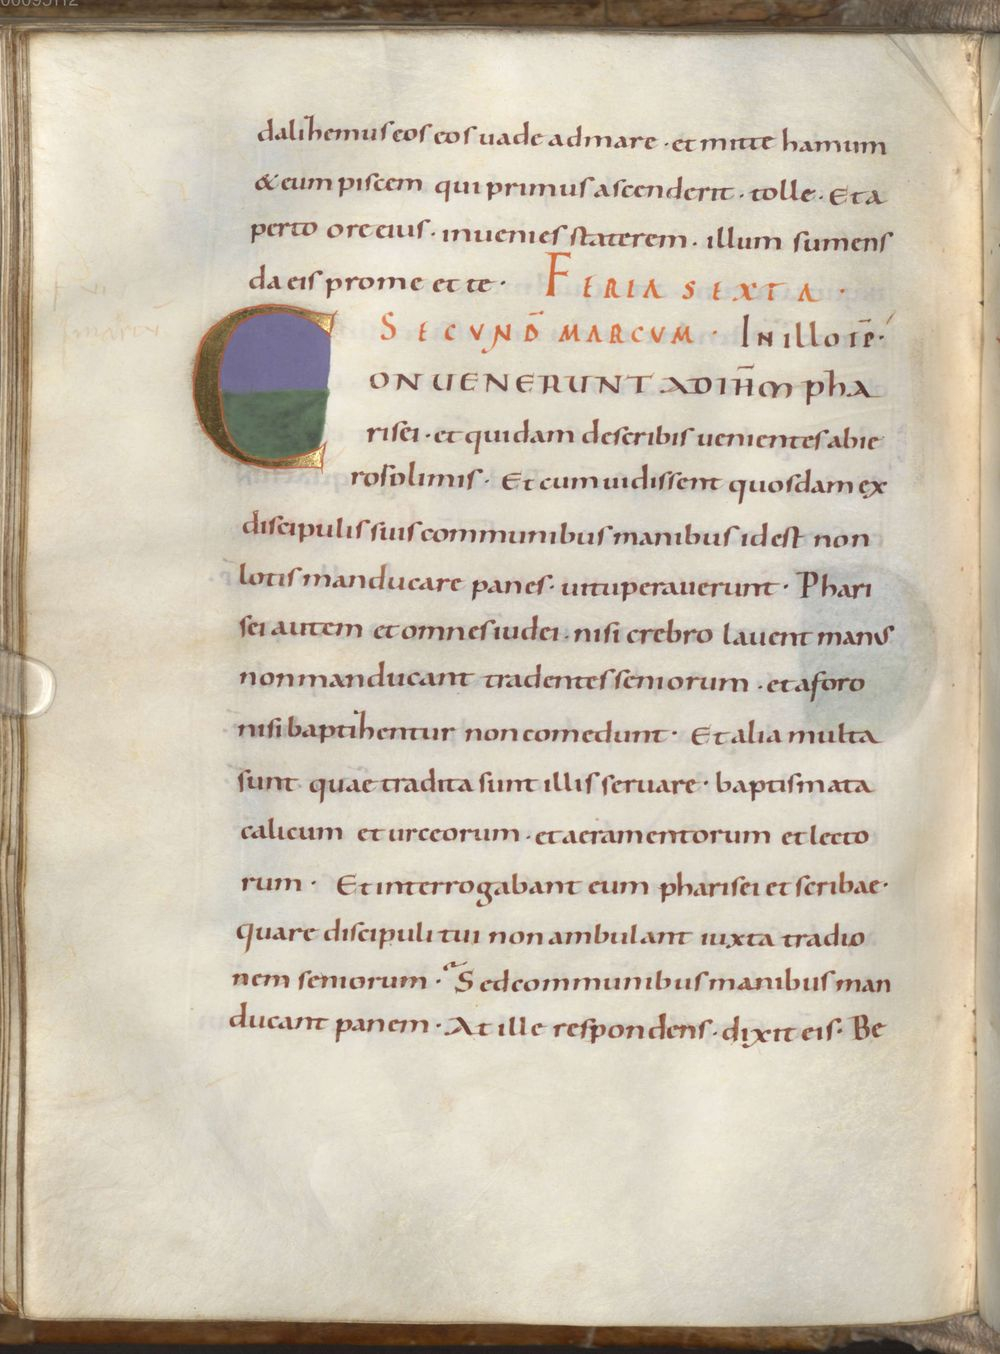 dalizemus eos eos uade ad mare · et mitte hamum
& eum piscem qui primus ascenderit · tolle · Et a
perto ore eius · inuenies staterem · illum sumens
da eis pro me et te · FERIA SEXTA ·
SECUND̄ MARCUM · IN illo tē·
CONUENERUNT AD IH̄M pha
risei · et quidam de scribis uenientes ab ie
rosolimis · Et cum uidissent quosdam ex
discipulis suis communibus manibus id est non
lotis manducare panes · uituperauerunt · Phari
sei autem et omnes iudei · nisi crebro lauent manus
non manducant tradentes seniorum · et a foro
nisi baptizentur non comedunt · Et alia multa
sunt quae tradita sunt illis seruare · baptismata
calicum et urceorum · et aeramentorum et lecto
rum · Et interrogabant eum pharisei et scribae·
quare discipuli tui non ambulant iuxta traditio
nem seniorum · Sed communibus manibus man
ducant panem · At ille respondens · dixit eis · Be